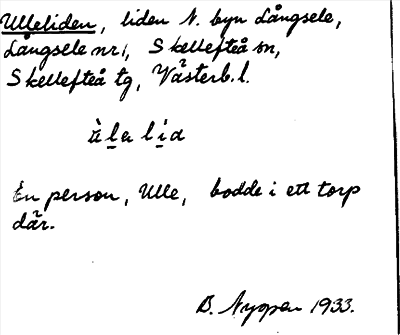 Ulleliden, liden N. byn Långsele,
Långsele nr 1, Skellefteå sn,
Skellefteå tg, Västerb. l.
En person, Ulle, bodde i ett torp
där.
B. Nygren 1933.